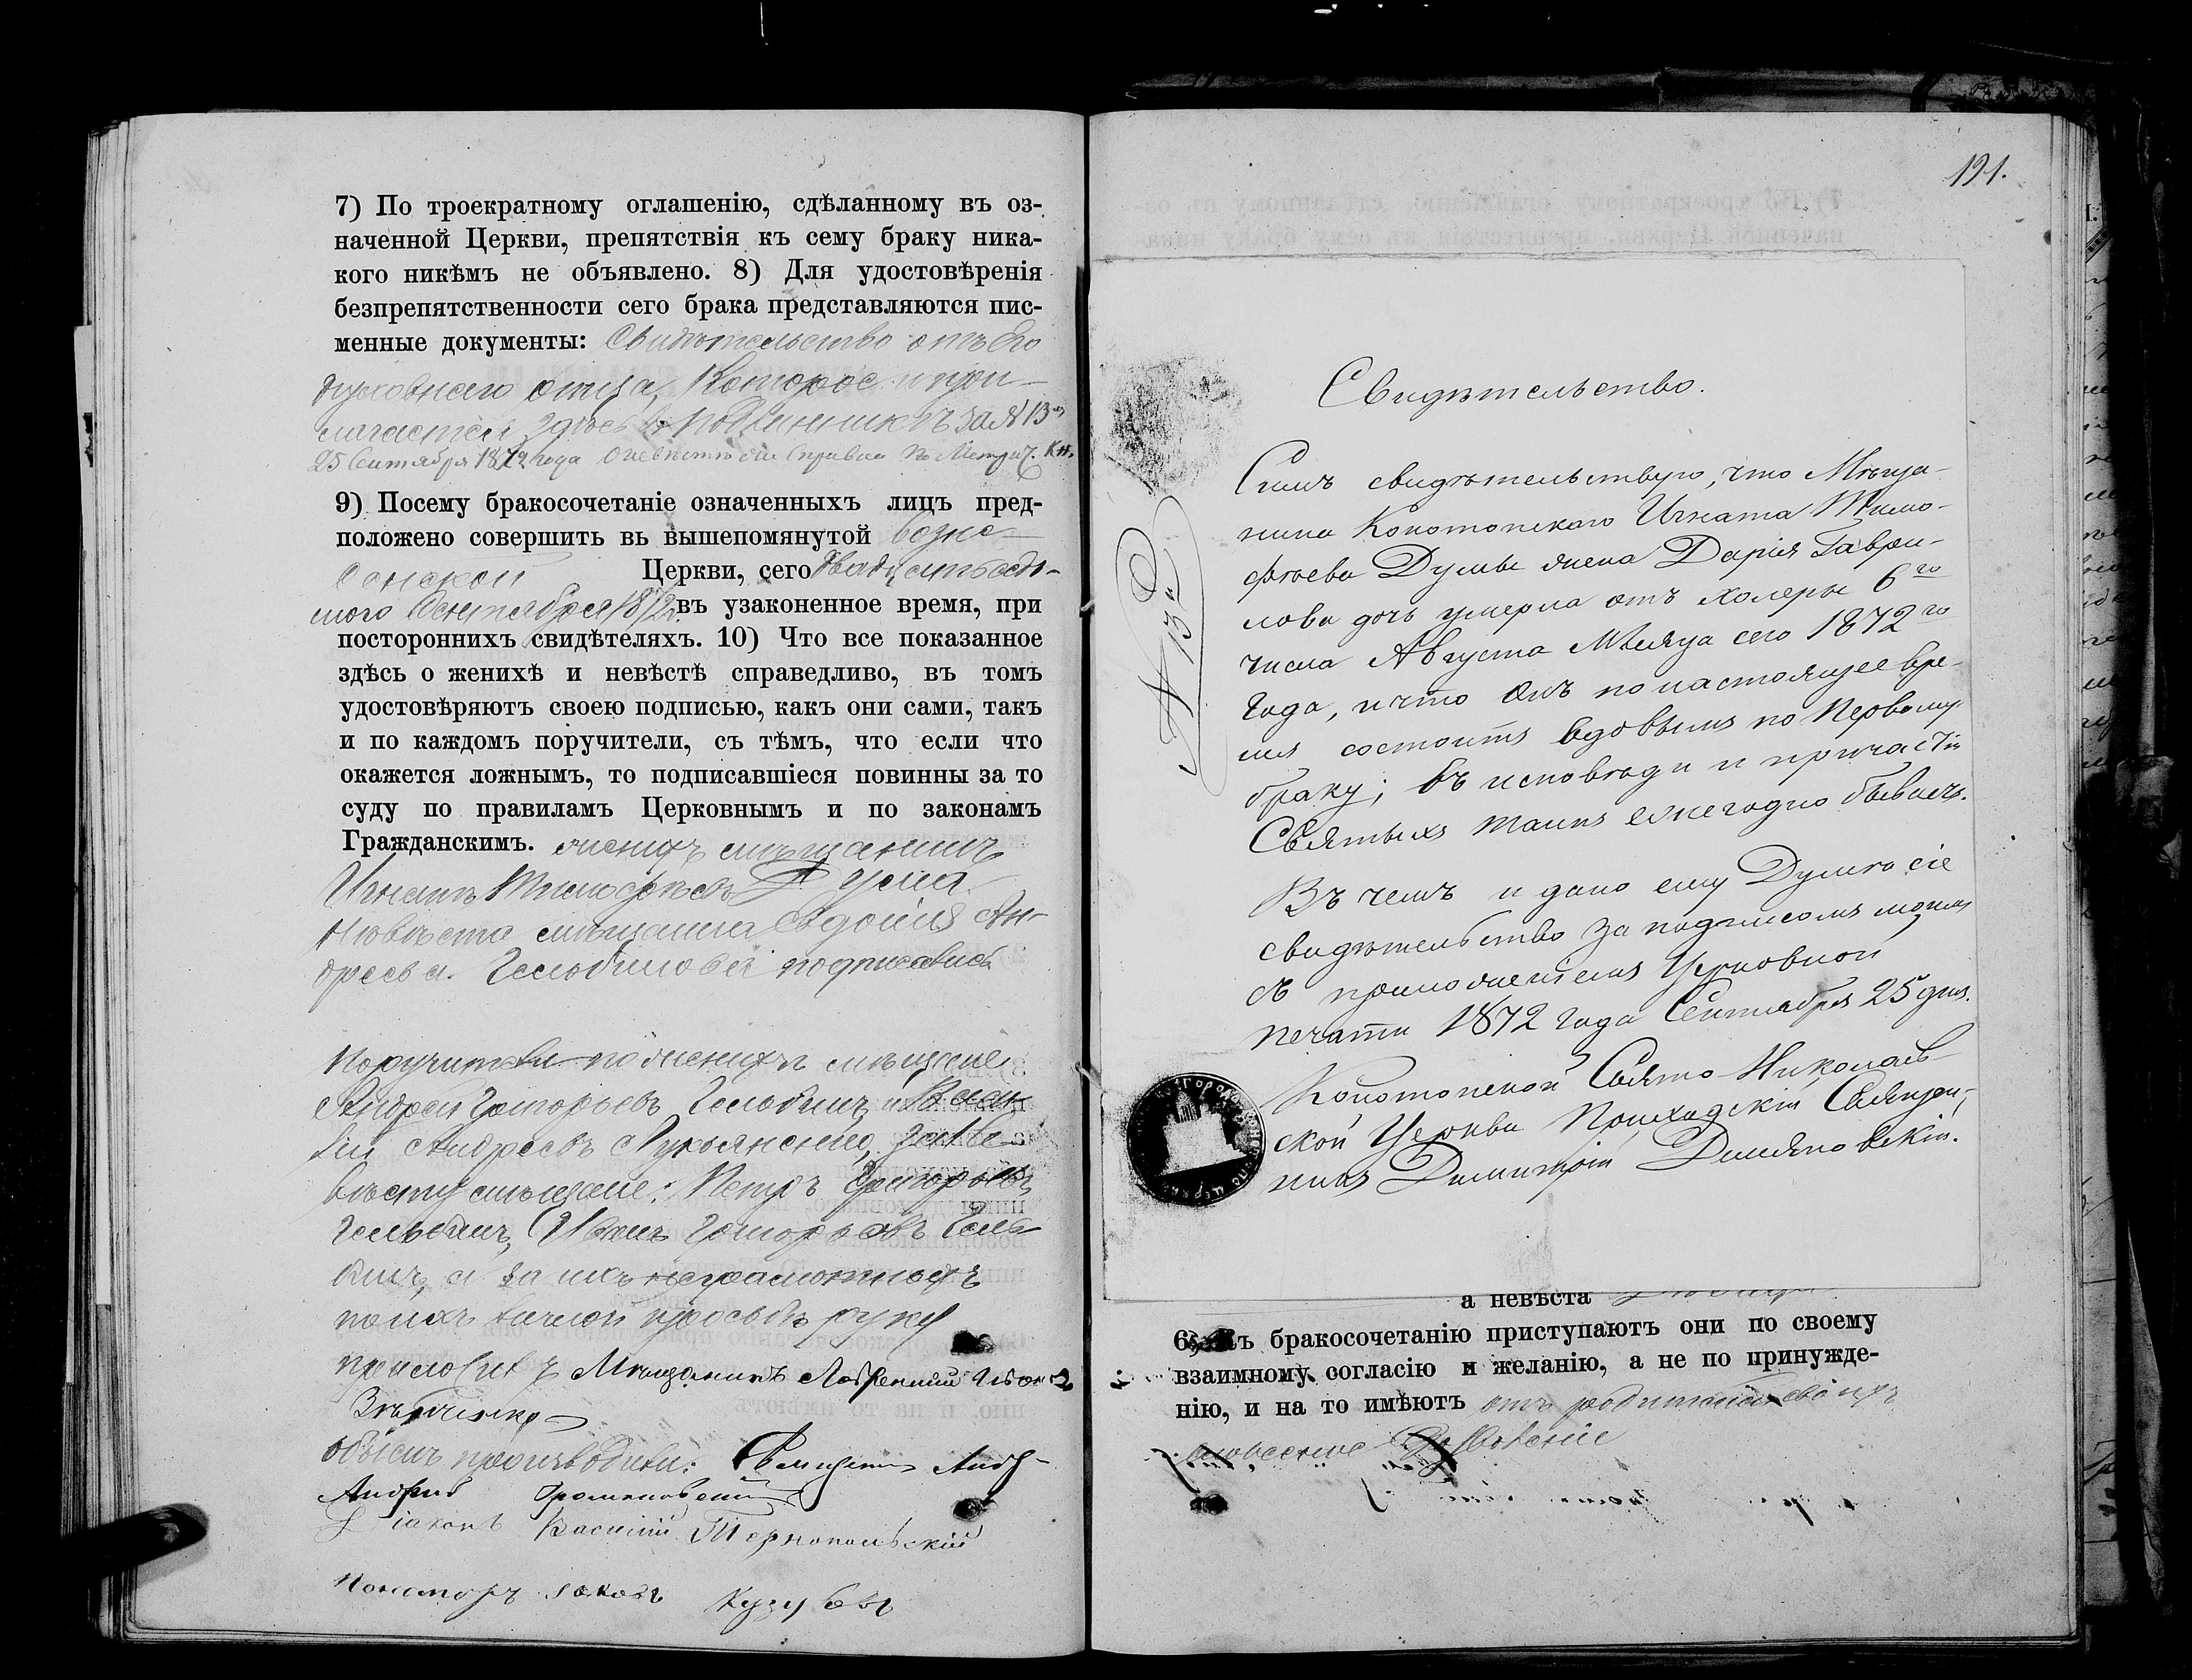 7) По троекратному оглашенію, сдѣланному въ оз-
наченной Церкви, препятствія къ сему браку ника-
кого никѣмъ не объявлено. 8) Для удостовѣренія
безпрепятственности сего брака представляются пис-
менные документы: Свидѣтельство отъ Его
духовнаго отца, Которое и при-
лагается здѣсь въ подлинникѣ за № 13
25 Сентября 1872 года О невѣстѣ Справка По Метрич. Кн.
9) Посему бракосочетаніе означенныхъ лицъ пред-
положено совершить вь вышепомянутой возне-
сенской Церкви, сего двадцять седь-
мого Сентября 1872 въ узаконенное время, при
постороннихъ свидѣтеляхъ. 10) Что все показанное
здѣсь о женихѣ и невѣстѣ справедливо, въ томъ
удостовѣряютъ своею подписью, какъ они сами, такъ
и по каждомъ поручители, съ тѣмъ, что если что
окажется ложнымъ, то подписавшіеся повинны за то
суду по правиламъ Церковнымъ и по законамъ
Гражданскимъ. женихъ мѣщанинъ
Игнатъ Тимофѣевъ Дума
Невѣста мѣщанка Евдокія Ан-
дреева подписались
Поручители по женихѣ мѣщане
Андрей Григорьевъ и Васи-
лій Андреевъ Лукьянскій, за Не-
вѣсту мѣщане: Петръ Григорьевъ
Иванъ Григорьевъ
а за ихъ неграмотныхъ
по ихъ личной просьбѣ руку
приложилъ Мѣщанинъ Лаврентій
обыскъ производили: Священникъ
Андрей
Діаконъ Василій Тернопольскій
Пономарь Яковъ Кузубовъ
191.
№ 132
Свидѣтельство.
Симъ свидѣтельствую, что Мѣща-
нина Конотопскаго Игната Тимо-
фѣева Думы жена Дарія Гаври-
лова дочь умерла отъ холеры 6го
числа Августа Мѣсяца сего 1872го
Года, и что онъ по настоящее вре-
мя состоитъ вдовымъ по Первому
браку; въ исповѣди и причастіи
Святыхъ таинъ ежегодно бываетъ.
Въ чемъ и дано ему Думѣ сіе
свидѣтельство за подписомъ моимъ
съ приложеніемъ Церковной
печати 1872 года Сентября 25 дня.
Конотопской Свято-Николаев-
ской Церкви Приходскій Священ-
никъ Димитрій Демяновскій.
а невѣста
6) Къ бракосочетанію приступаютъ они по своему
взаимному согласію и желанію, а не по принужде-
нію, и на то имѣютъ отъ родителей своихъ
словесное дозволеніе